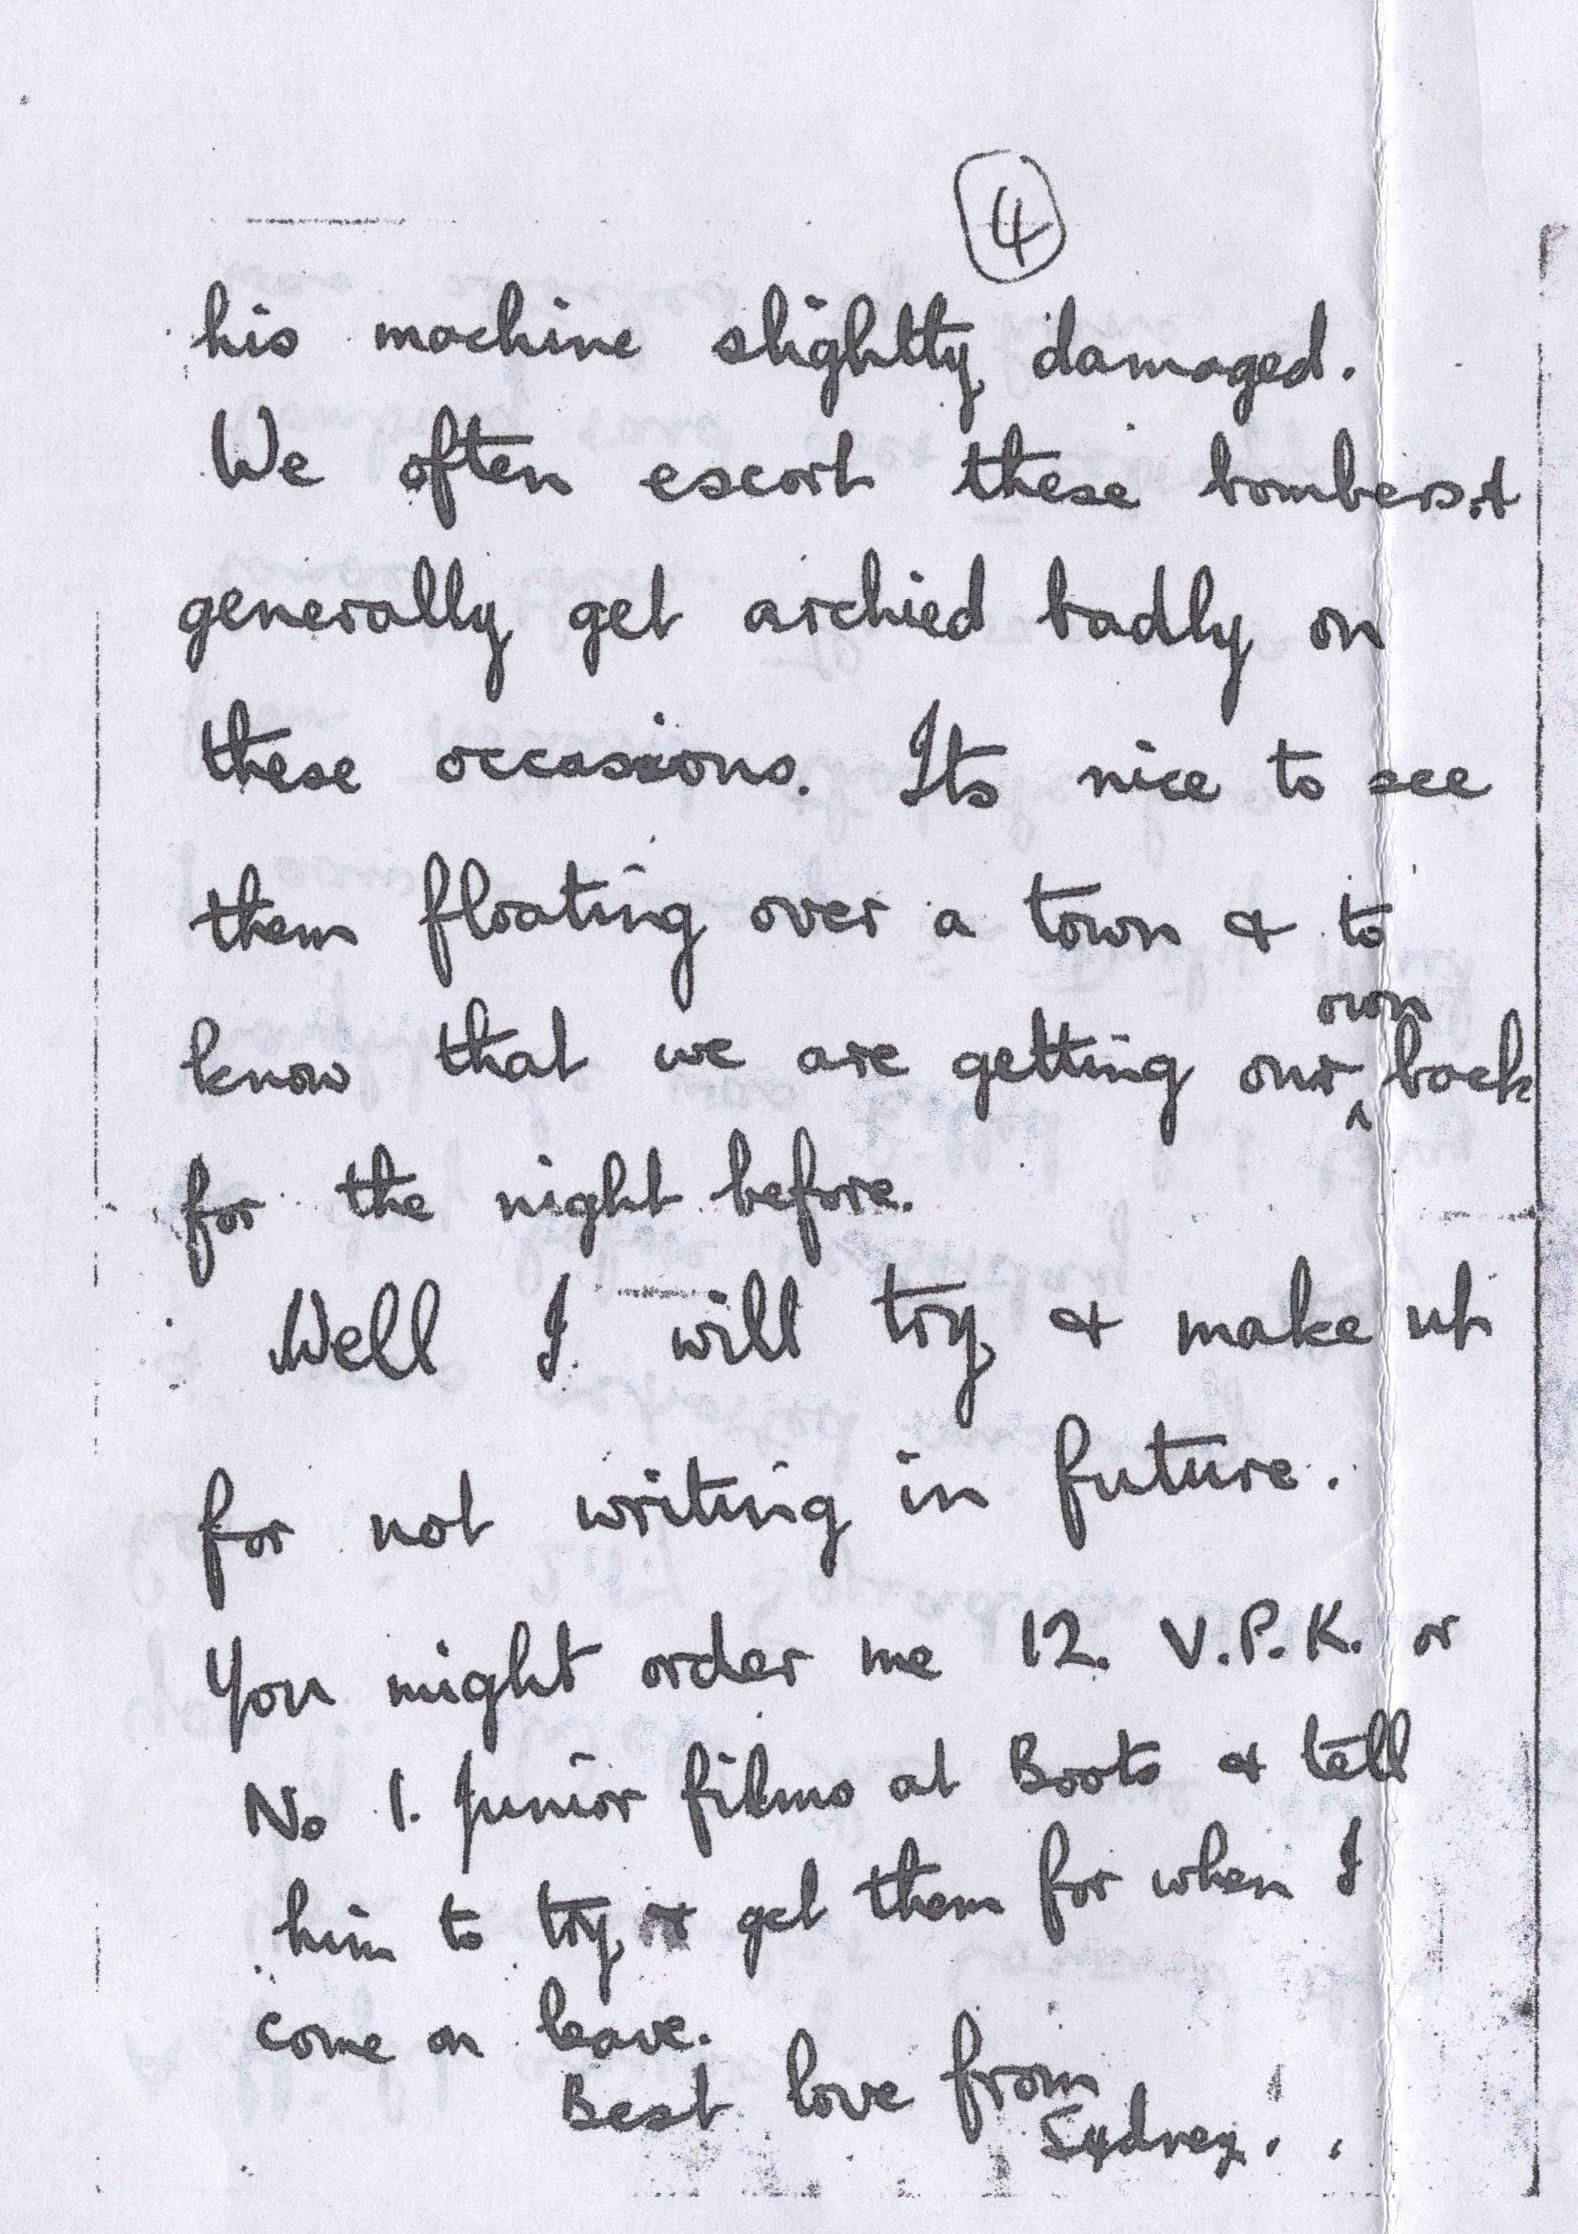 4
his machine slightly damaged.
We often escort these bombers &
generally get archied badly on
these occassions. Its nice to see
them floating over a town & to
know that we are getting our own back
for the night before.
Well I will try & make up
for not writing in future.
You might order me 12. V.P.K. or
No 1. Junior films at Boots & tell
him to try & get them for when I
come on leave.
Best love from
Sydney.